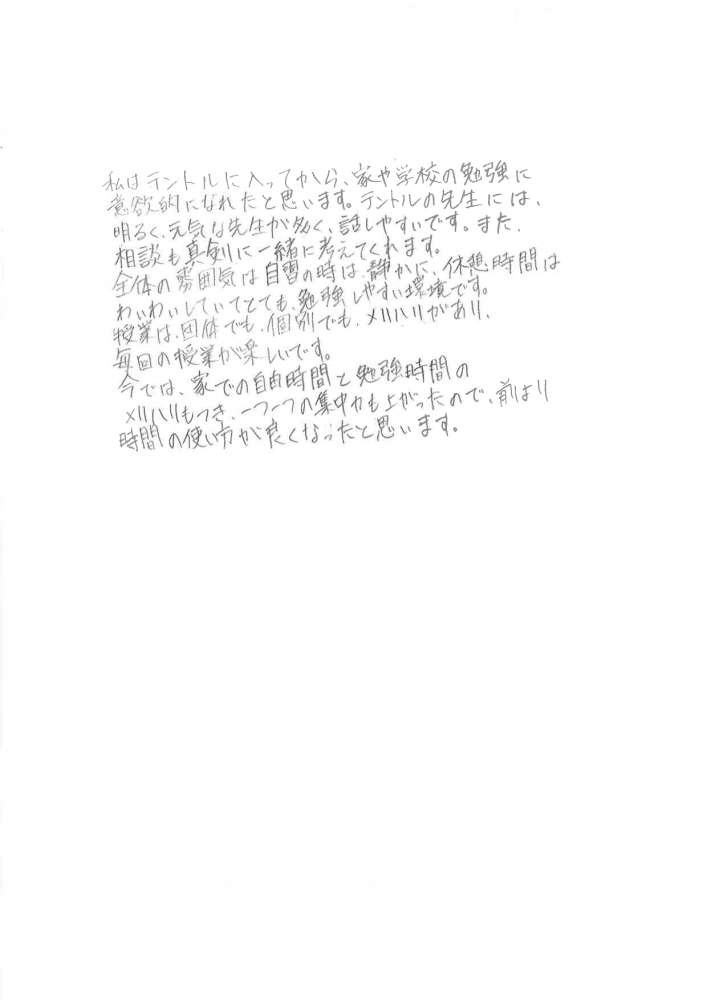 私はテントルに入ってから、家や学校の勉強に
意欲的になれたと思います。テントルの先生には、
明るく、元気な先生が多く、話しやすいです。また、
相談も真剣に一緒に考えてくれます。
全体の雰囲気は自習の時は、静かに、休憩時間は
わいわいしていてとても、勉強しやすい環境です。
授業は、団体でも、個別でも、メリハリがあり、
毎回の授業が楽しいです。
今では、家での自由時間と勉強時間の
メリハリもつき、一つ一つの集中力も上がったので、前より
時間の使い方が良くなったと思います。